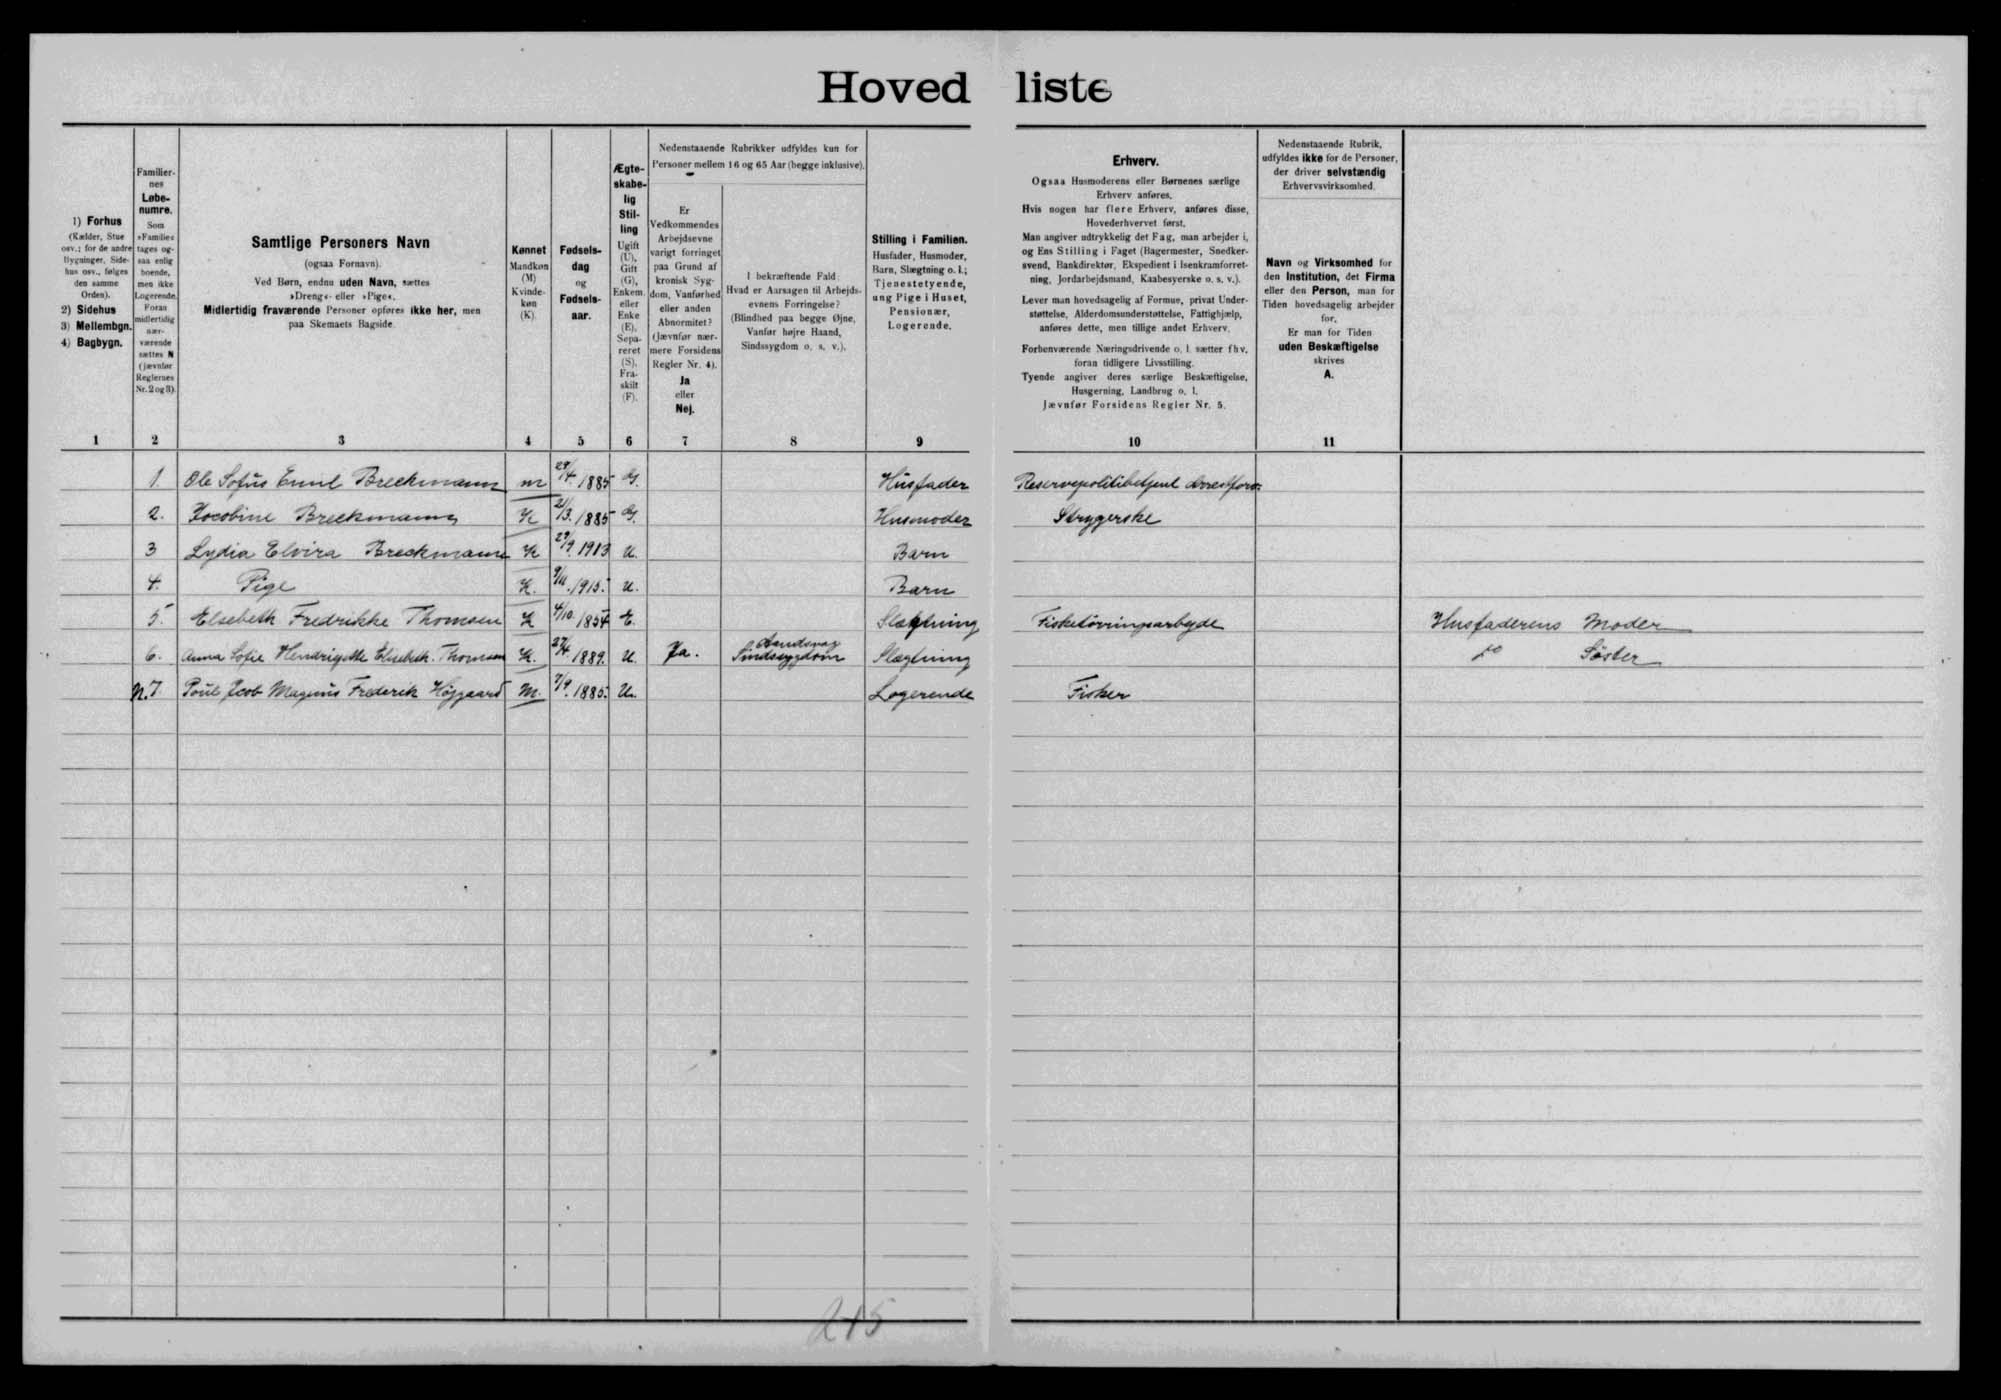 Hovedliste
1) Forhus
(Kælder, Stue
osv.; for de andre
Bygninger, Side-
hus osv., følges
den samme
Orden).
2) Sidehus
3) Mellembgn.
4) Bagbygn.
Familier-
nes
Løbe-
numre.
Som
»Familie«
tages og-
saa enlig
boende,
men ikke
Logerende.
Foran
midlertidig
nær-
værende
sættes N
(jævnfør
Reglernes
Nr. 2 og 3).
Samtlige Personers Navn
(ogsaa Fornavn).
Ved Børn, endnu uden Navn, sættes
»Dreng«- eller »Pige«.
Midlertidig fraværende Personer opføres ikke her, men
paa Skemaets Bagside.
Kønnet
Mandkøn
(M)
Kvinde-
køn
(K).
Fødsels-
dag
og
Fødsels-
aar.
Ægte-
skabe-
lig
Stil-
ling
Ugift
(U),
Gift
(G),
Enkem.
eller
Enke
(E),
Sepa-
reret
(S),
Fra-
skilt
(F).
Nedenstaaende Rubrikker udfyldes kun for
Personer mellem 16 og 65 Aar (begge inklusive).
Er
Vedkommendes
Arbejdsevne
varigt forringet
paa Grund af
kronisk Syg-
dom, Vanførhed
eller anden
Abnormitet?
(Jævnfør nær-
mere Forsidens
Regler Nr. 4).
Ja
eller
Nej.
I bekræftende Fald:
Hvad er Aarsagen til Arbejds-
evnens Forringelse?
(Blindhed paa begge Øjne,
Vanfør højre Haand,
Sindssygdom o. s. v.).
Stilling i Familien.
Husfader, Husmoder,
Barn, Slægtning o. l.;
Tjenestetyende,
ung Pige i Huset,
Pensionær,
Logerende.
Erhverv.
Ogsaa Husmoderens eller Børnenes særlige
Erhverv anføres.
Hvis nogen har flere Erhverv, anføres disse,
Hovederhvervet først.
Man angiver udtrykkelig det Fag, man arbejder i,
og Ens Stilling i Faget (Bagermester, Snedker-
svend, Bankdirektør, Ekspedient i Isenkramforret-
ning, Jordarbejdsmand, Kaabesyerske o. s. v.).
Lever man hovedsagelig af Formue, privat Under-
støttelse, Alderdomsunderstøttelse, Fattighjælp,
anføres dette, men tillige andet Erhverv.
Forhenværende Næringsdrivende o. l. sætter fhv.
foran tidligere Livsstilling.
Tyende angiver deres særlige Beskæftigelse,
Husgerning, Landbrug o. l.
Jævnfør Forsidens Regler Nr. 5.
Nedenstaaende Rubrik,
udfyldes ikke for de Personer,
der driver selvstændig
Erhvervsvirksomhed.
Navn og Virksomhed for
den Institution, det Firma
eller den Person, man for
Tiden hovedsagelig arbejder
for.
Er man for Tiden
uden Beskæftigelse
skrives
A.
1 2 3 4 5 6 7 8 9 10 11
1. Ole Sofus Emil Breckmann m 29/4 1885 G. Husfader Reservepolitibetjent
2. Jocobine Breckmann K 21/3. 1885 G. Husmoder Strygerske
3 Lydia Elvira Breckmann K 29/9. 1913 U. Barn
4. Pige K. 9/11. 1915. U. Barn
5. Elsebeth Fredrikke Thomsen K 4/10. 1854 E. Slægtning Fisketörringsarbejde Husfaderens Moder
6. Anna Sofie Elsebeth. Thomsen K. 27/4. 1889. U. Ja. Aandssvag Sindssygdom Slægtning do Søster
N. 7. Poul Jcob Magnus Frederik Højgaard M. 7/9. 1885. U. Logerende Fisker
215